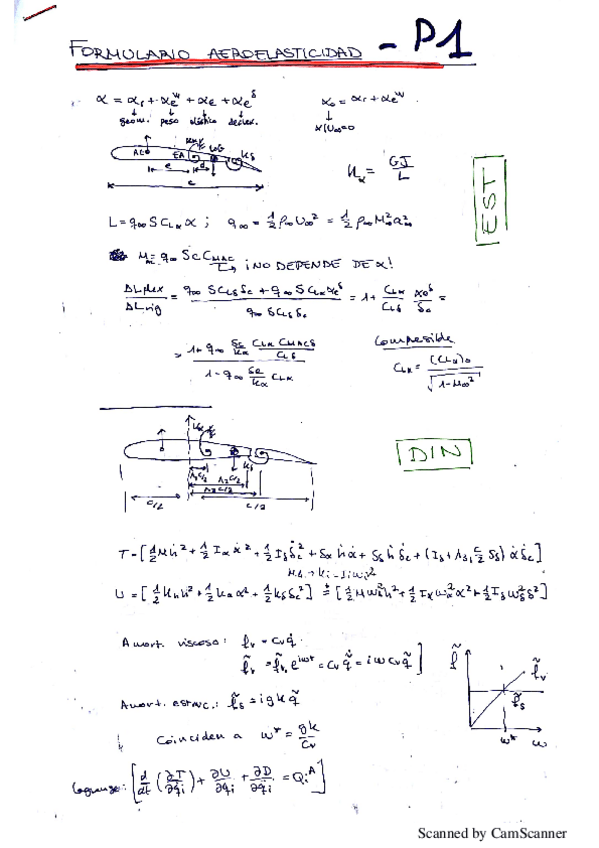 FORMULARIO AEROELASTICIDAD - P1
α = αr + αe^w + αe + αe^δ
α0 = αr + αe^w
geom. peso elástica deflex.
α|U∞=0
Kα
AE EA CG Kδ
e d
c
Kα = GJ/L
EST
L = q∞ S CLα α ; q∞ = 1/2 ρ∞ U∞² = 1/2 ρ∞ M∞² a∞²
Mac = q∞ S c CMAC
¡NO DEPENDE DE α!
ΔLflex/ΔLrig = (q∞ S CLδ δc + q∞ S CLα αe^δ)/(q∞ S CLδ δc) = 1 + CLα/CLδ αe^δ/δc =
Compresible
= (1 + q∞ Sc/Kα CLα CMACδ/CLδ)/(1 - q∞ Se/Kα CLα)
CLα = (CLα)0/√(1-M∞²)
Kα
DIN
Kδ
c/2 c/2
T = [1/2 M ḣ² + 1/2 Iα α̇² + 1/2 Iδ δ̇c² + Sα ḣ α̇ + Sδ ḣ δ̇c + (Iδ + Λ3 c/2 Sδ) α̇ δ̇c]
U = [1/2 Kh h² + 1/2 Kα α² + 1/2 Kδ δc²] = [1/2 M ωh² h² + 1/2 Iα ωα² α² + 1/2 Iδ ωδ² δ²]
Amort. viscoso: fv = cv q̇
f̃v = f̃v e^iωt = cv q̃̇ = iω cv q̃]
f̃
f̃v
Amort. estruc.: f̃s = i g k q̃
f̃s
Coinciden a ω* = gk/cv
ω* ω
Lagrange: [d/dt (∂T/∂q̇i) + ∂U/∂qi + ∂D/∂q̇i = Qi^A]
Scanned by CamScanner